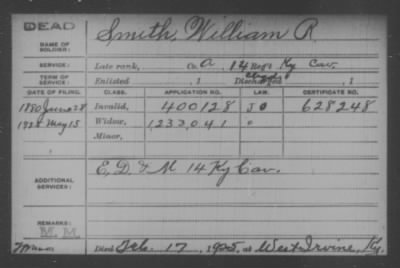 DEAD
NAME OF SOLDIER: Smith, William R.
SERVICE: Late rank, Co. A, 14 Reg't Ky Cav.
TERM OF SERVICE: Enlisted , 1 Discharged , 1
DATE OF FILING. CLASS. APPLICATION NO. LAW. CERTIFICATE NO.
1880 June 28 Invalid, 400128 628248
1925 May 15 Widow, 1233041
Minor,
ADDITIONAL SERVICES: E, D & M 14 Ky Cav.
REMARKS: M. M.
Died Feb. 17, 1925, at West Irvine, Ky.